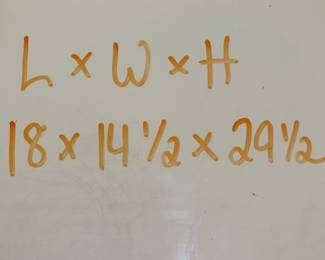 L x W x H
18 x 14 1/2 x 29 1/2